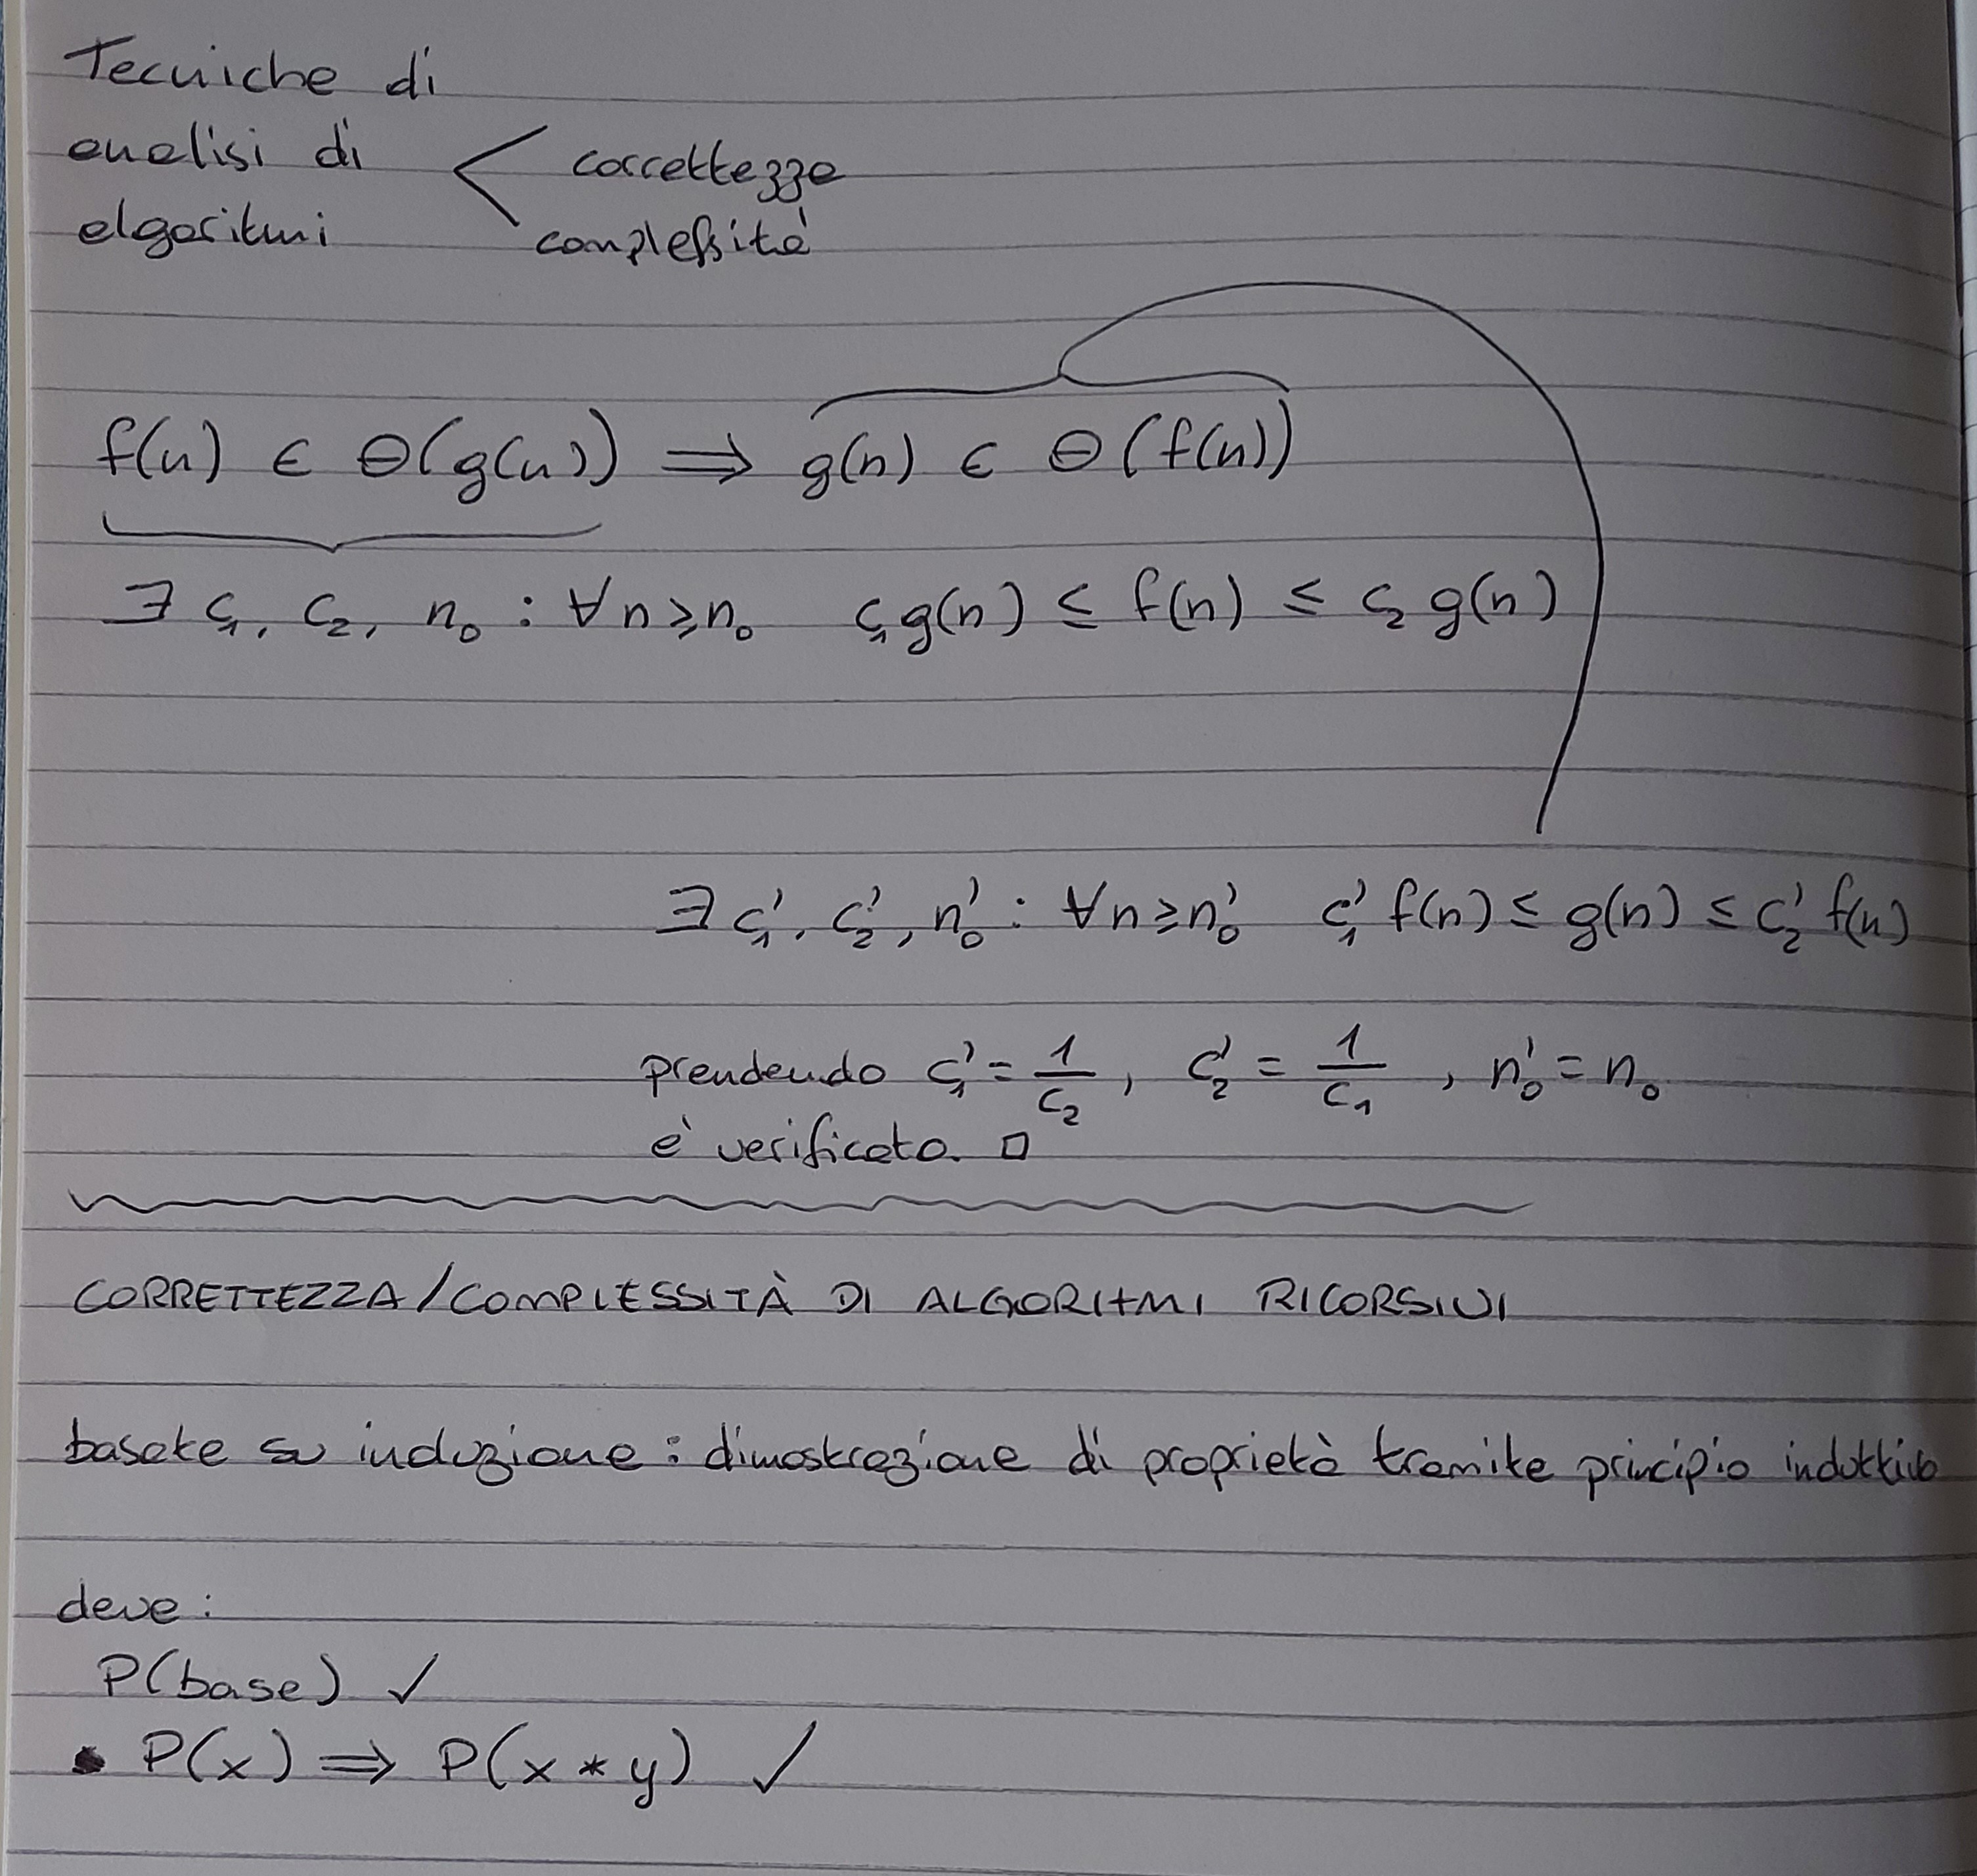 Tecniche di
analisi di < correttezza
algoritmi complessità
f(n) ∈ Θ(g(n)) ⟹ g(n) ∈ Θ(f(n))
∃ c₁, c₂, n₀ : ∀n ≥ n₀ c₁g(n) ≤ f(n) ≤ c₂ g(n)
∃ c₁', c₂', n₀' : ∀n ≥ n₀' c₁' f(n) ≤ g(n) ≤ c₂' f(n)
prendendo c₁' = 1/c₂, c₂' = 1/c₁, n₀' = n₀
è verificato. □
CORRETTEZZA/COMPLESSITÀ DI ALGORITMI RICORSIVI
basate su induzione : dimostrazione di proprietà tramite principio induttivo
deve :
P(base) ✓
• P(x) ⟹ P(x * y) ✓